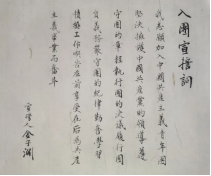 入團宣誓詞
我志願加入中國共產主義青年團
堅決擁護中國共產黨的領導遵
守團的章程執行團的決議履行團
員義務嚴守團的紀律勤奮學習
積極工作吃苦在前享受在后為共產
主義事業而奮斗
宣誓人金子澜